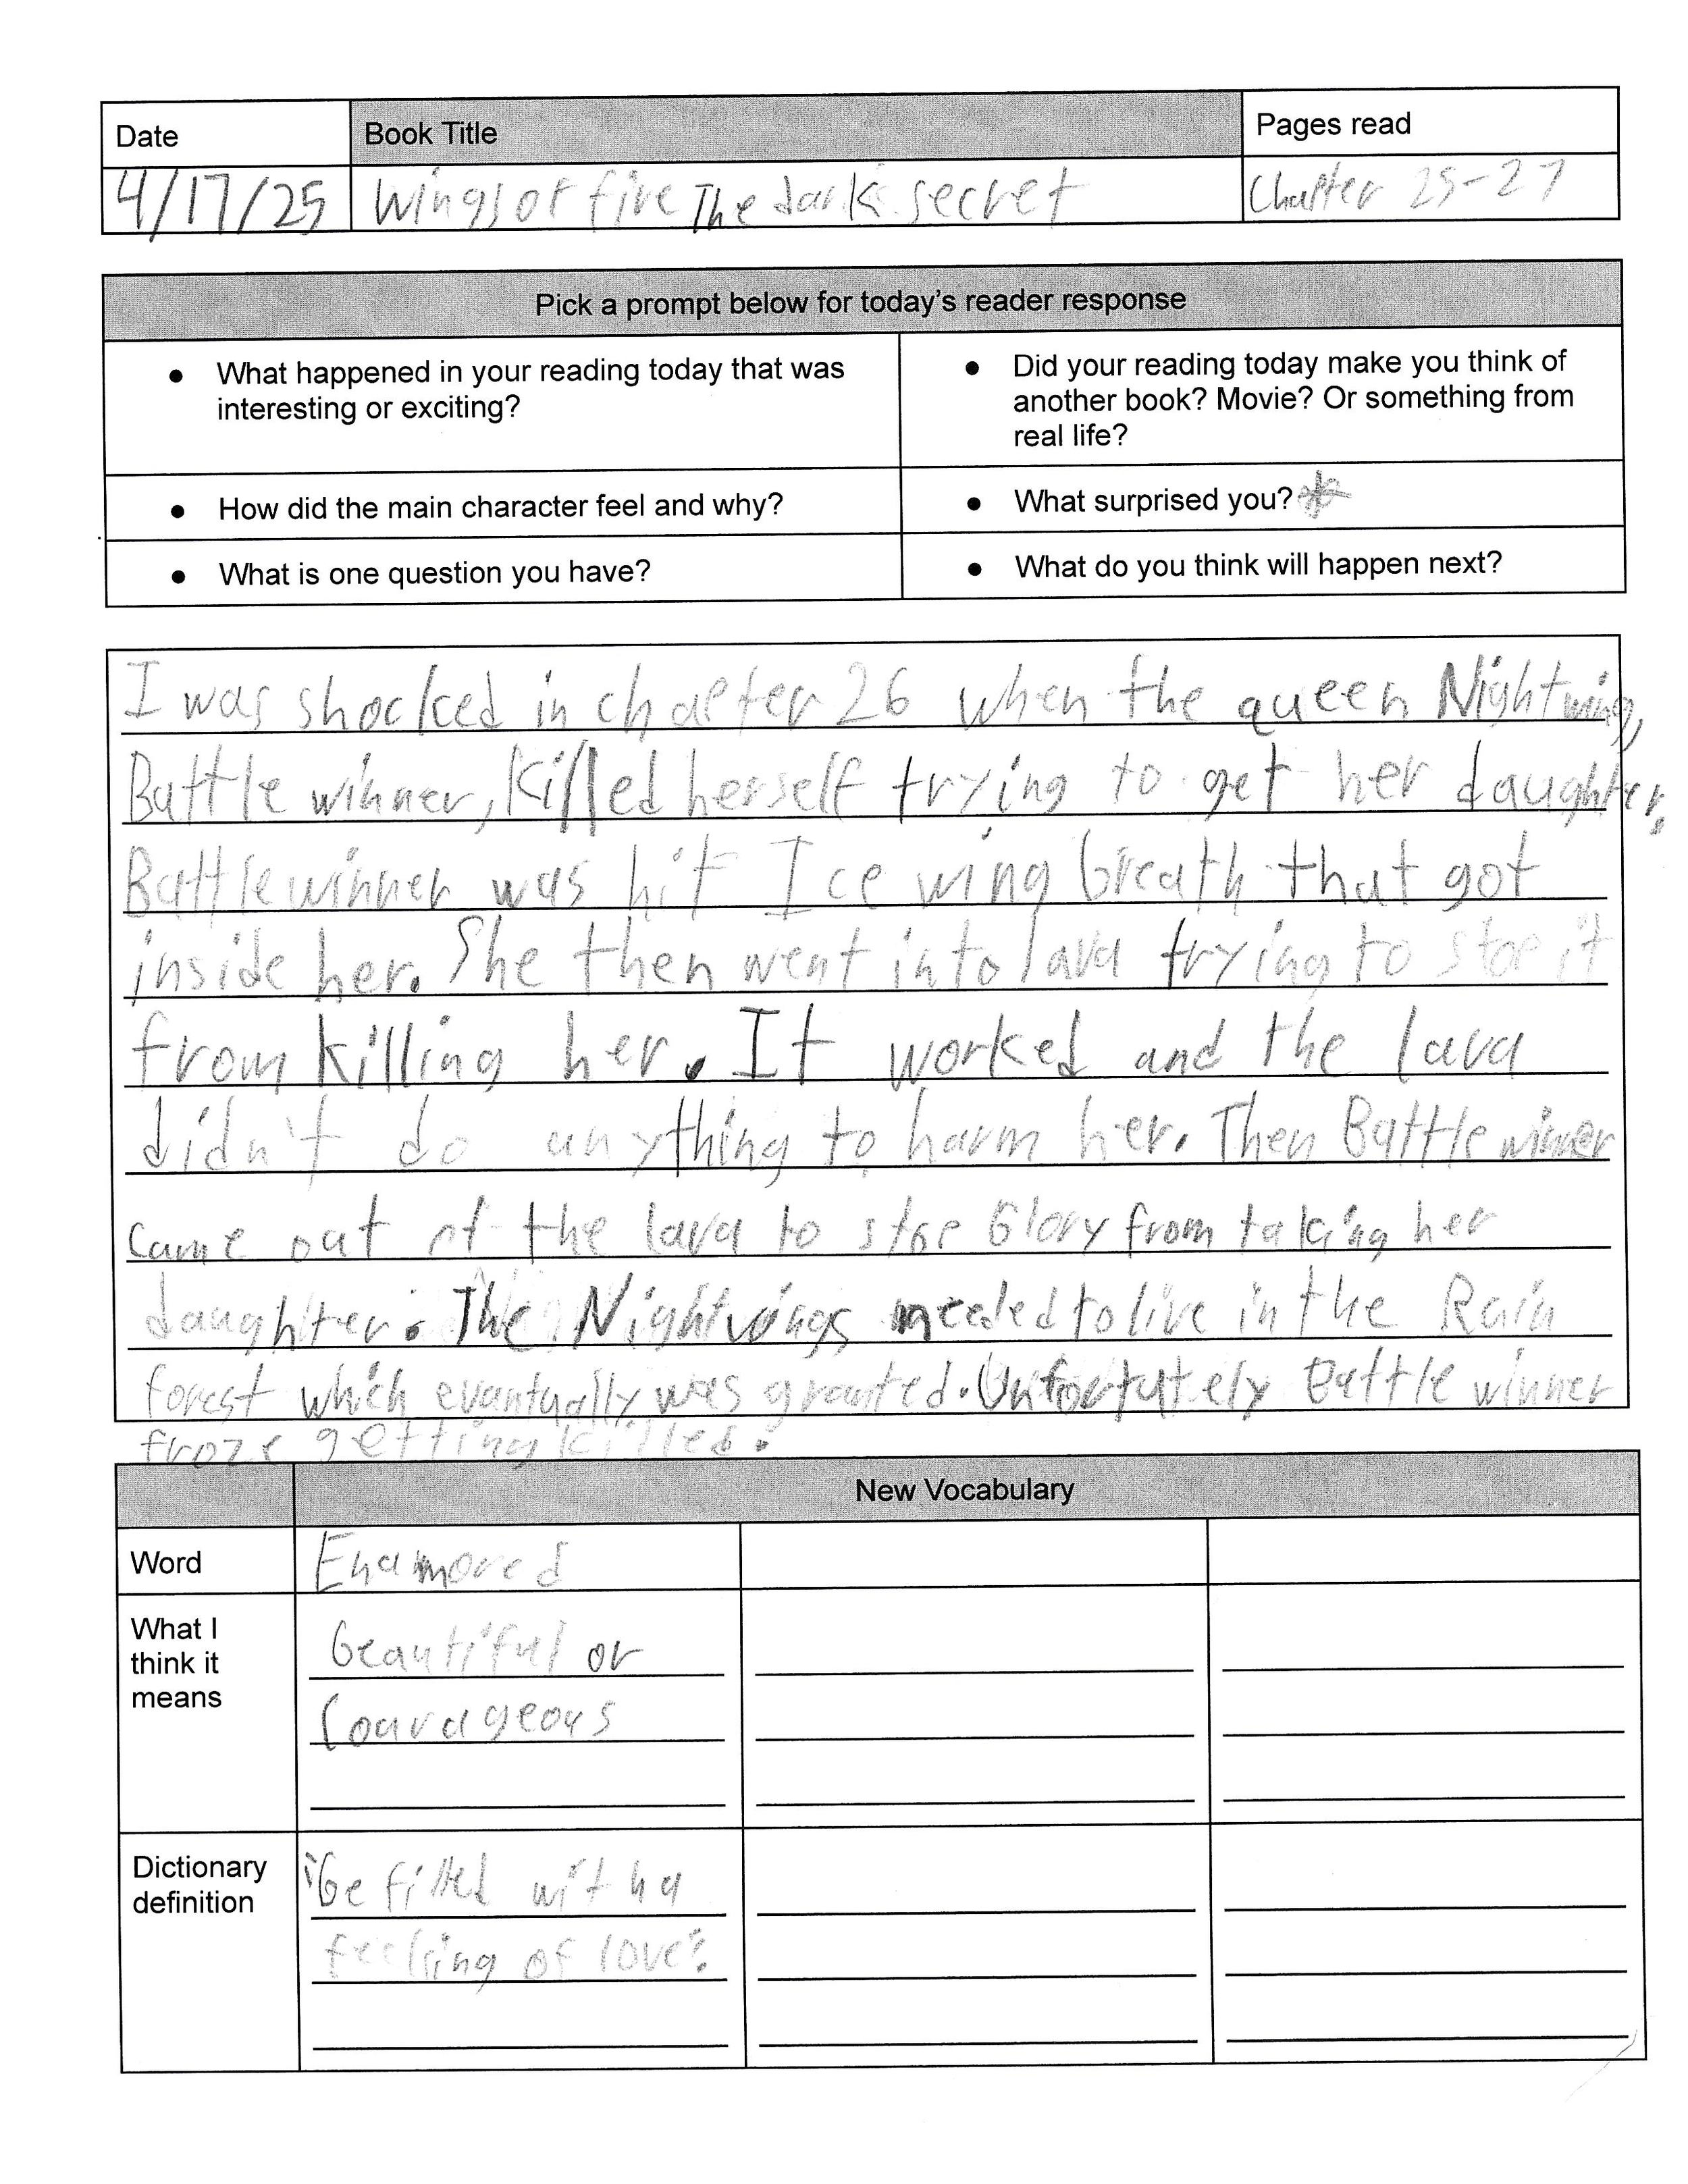 Date
Book Title
Pages read
4/17/25
Wings of fire The dark secret
Chapter 25-27
Pick a prompt below for today's reader response
• What happened in your reading today that was
interesting or exciting?
• Did your reading today make you think of
another book? Movie? Or something from
real life?
• How did the main character feel and why?
• What surprised you? *
• What is one question you have?
• What do you think will happen next?
I was shocked in chapter 26 when the queen Nightwing,
Battle winner, killed herself trying to get her daughter.
Battlewinner was hit Ice wing breath that got
inside her. She then went into lava trying to stop it
from killing her. It worked and the lava
didn't do anything to harm her. Then Battle winner
came out of the lava to stop Glory from taking her
daughter. The Nightwings needed to live in the Rain
forest which evantually was granted. Unfortutely Battle winner
froze getting killed.
New Vocabulary
Word
Enamored
What I
think it
means
beautiful or
Couradgeous
Dictionary
definition
"be filled with a
feeling of love".